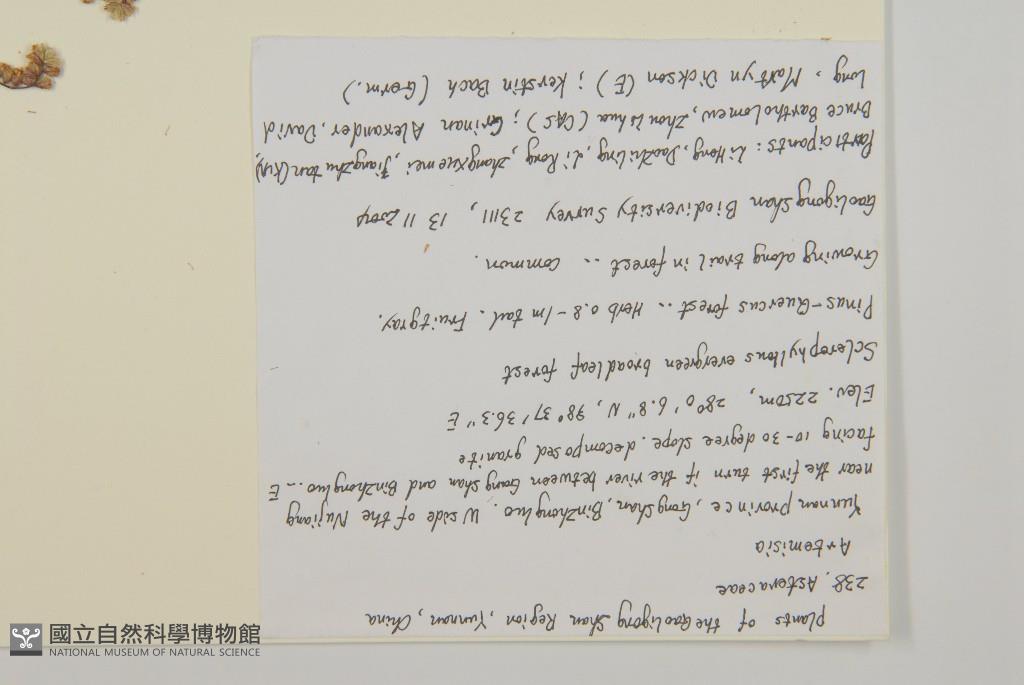 plants of the Gaoligong Shan Region, Yunnan, China
238. Asteraceae
Artemisia
Yunnan province, Gongshan, Binzhongluo. W side of the Nujiang
near the first turn if the river between Gongshan and Binzhongluo... E
facing 10-30 degree slope. decomposed granite
Elev. 2250m, 28°0'6.8"N, 98°37'36.3"E
Sclerophyllous evergreen broadleaf forest
Pinus-Quercus forest... Herb 0.8-1m tall. Fruit gray.
Growing along trail in forest... Common.
Gaoligong Shan Biodiversity Survey 23111, 13 11 2004
Participants: Li Heng, Dao Zhiling, Li Rong, Zhang Xuemei, Jiang Zhu tan (KUN),
Bruce Bartholomew, Zhou Lihua (CAS); Crinan Alexander, David
Long, Martyn Dickson (E); Kerstin Bach (Germ.)
國立自然科學博物館
NATIONAL MUSEUM OF NATURAL SCIENCE